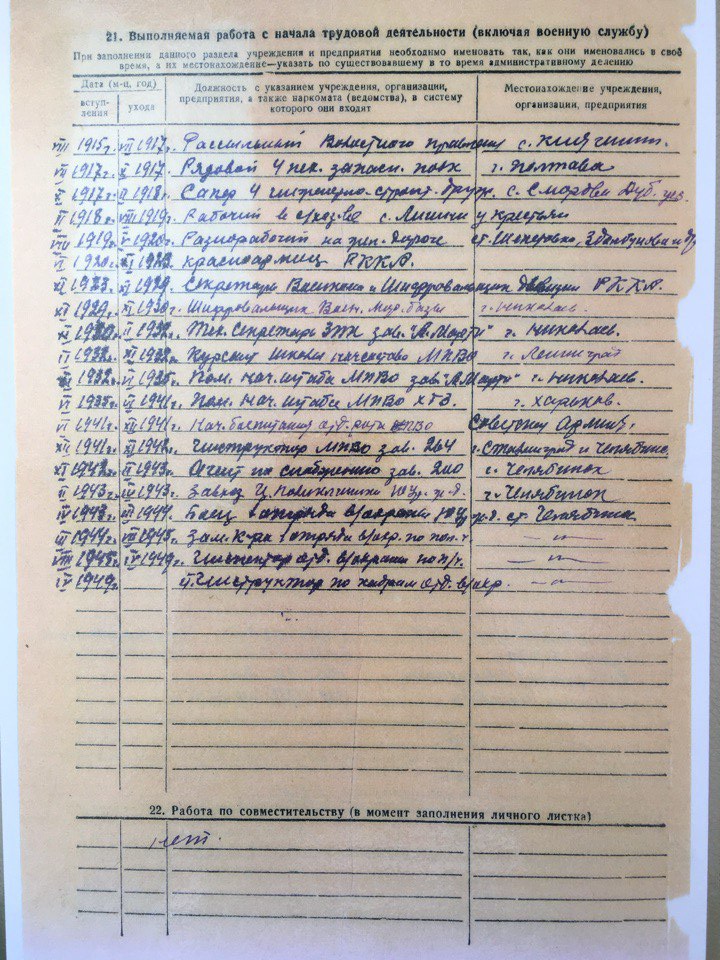 21. Выполняемая работа с начала трудовой деятельности (включая военную службу)
При заполнении данного раздела учреждения и предприятия необходимо именовать так, как они именовались в своё
время, а их местонахождение—указать по существовавшему в то время административному делению
Дата (м-ц, год)
вступления
ухода
Должность с указанием учреждения, организации,
предприятия, а также наркомата (ведомства), в систему
которого они входят
Местонахождение учреждения,
организации, предприятия
VIII 1915г. VII 1917г. Рассыльный Волостного правления с.
VII 1917г. X 1917. Рядовой 4 пех. запасн. полк г. Полтава
X 1917г. II 1918г. Сапер 4 с. уез.
II 1918г. VIII 1919г. Рабочий в с/хоз-ве с. у крестьян
VIII 1919г. V 1920г. Разнорабочий на жел. дороге ст. Шепетовка, Здолбуново
V 1920г. красноармеец РККА.
XI 1923. XI 1929. Секретарь Военкома и Шифровальщик дивизии РККА.
XI 1929г. XI 1930г. Шифровальщик Воен. базы г. Николаев.
XI 1930г. II 1932г. Тех. Секретарь ЗЖ зав. "А. Марти" г. Николаев.
II 1932г. XI 1932г. Курсант школы начсостава МПВО г. Ленинград
1932г. VI 1935г. Пом. нач. штаба МПВО зав. "А. Марти" г. Николаев.
VI 1935г. VI 1941г. Пом. нач. штаба МПВО ХТЗ. г. Харьков.
VI 1941г. XI 1941г. Нач. боепитания отд. МПВО Советская Армия.
XI 1941г. XI 1942г. Инструктор МПВО зав. 264 г. Сталинград и Челябинск
XI 1942г. II 1943г. Агент по снабжению зав. 200 г. Челябинск
II 1943г. III 1943г. Завхоз Ц. поликлиники ЮУр. ж.д. г. Челябинск
III 1943г. III 1944г. Боец отряда в/охраны ЮУ ж.д. ст. Челябинск
III 1944г. VIII 1945г. Зам. к-ра отряда в/охр. по пол. ч. —"—
VIII 1945г. IV 1949г. Инспектор отд. в/охраны по п/ч. —"—
IV 1949г. Инструктор по кадрам отд. в/охр. —"—
22. Работа по совместительству (в момент заполнения личного листка)
нет.